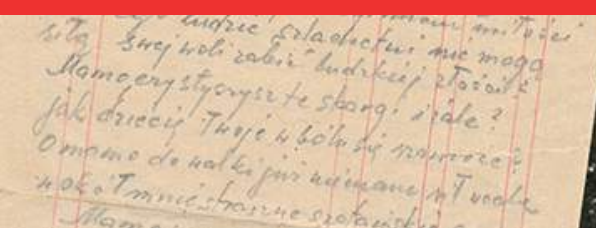 ludzie szlachetni nie mogą
siłą swej woli zabić ludzkiej złości?
Mamo czy słyszysz te skargi i żale?
jak dziecię Twoje w bólu się
O mamo do walki już nie mam sił wcale
wokół mnie straszne
Mamo